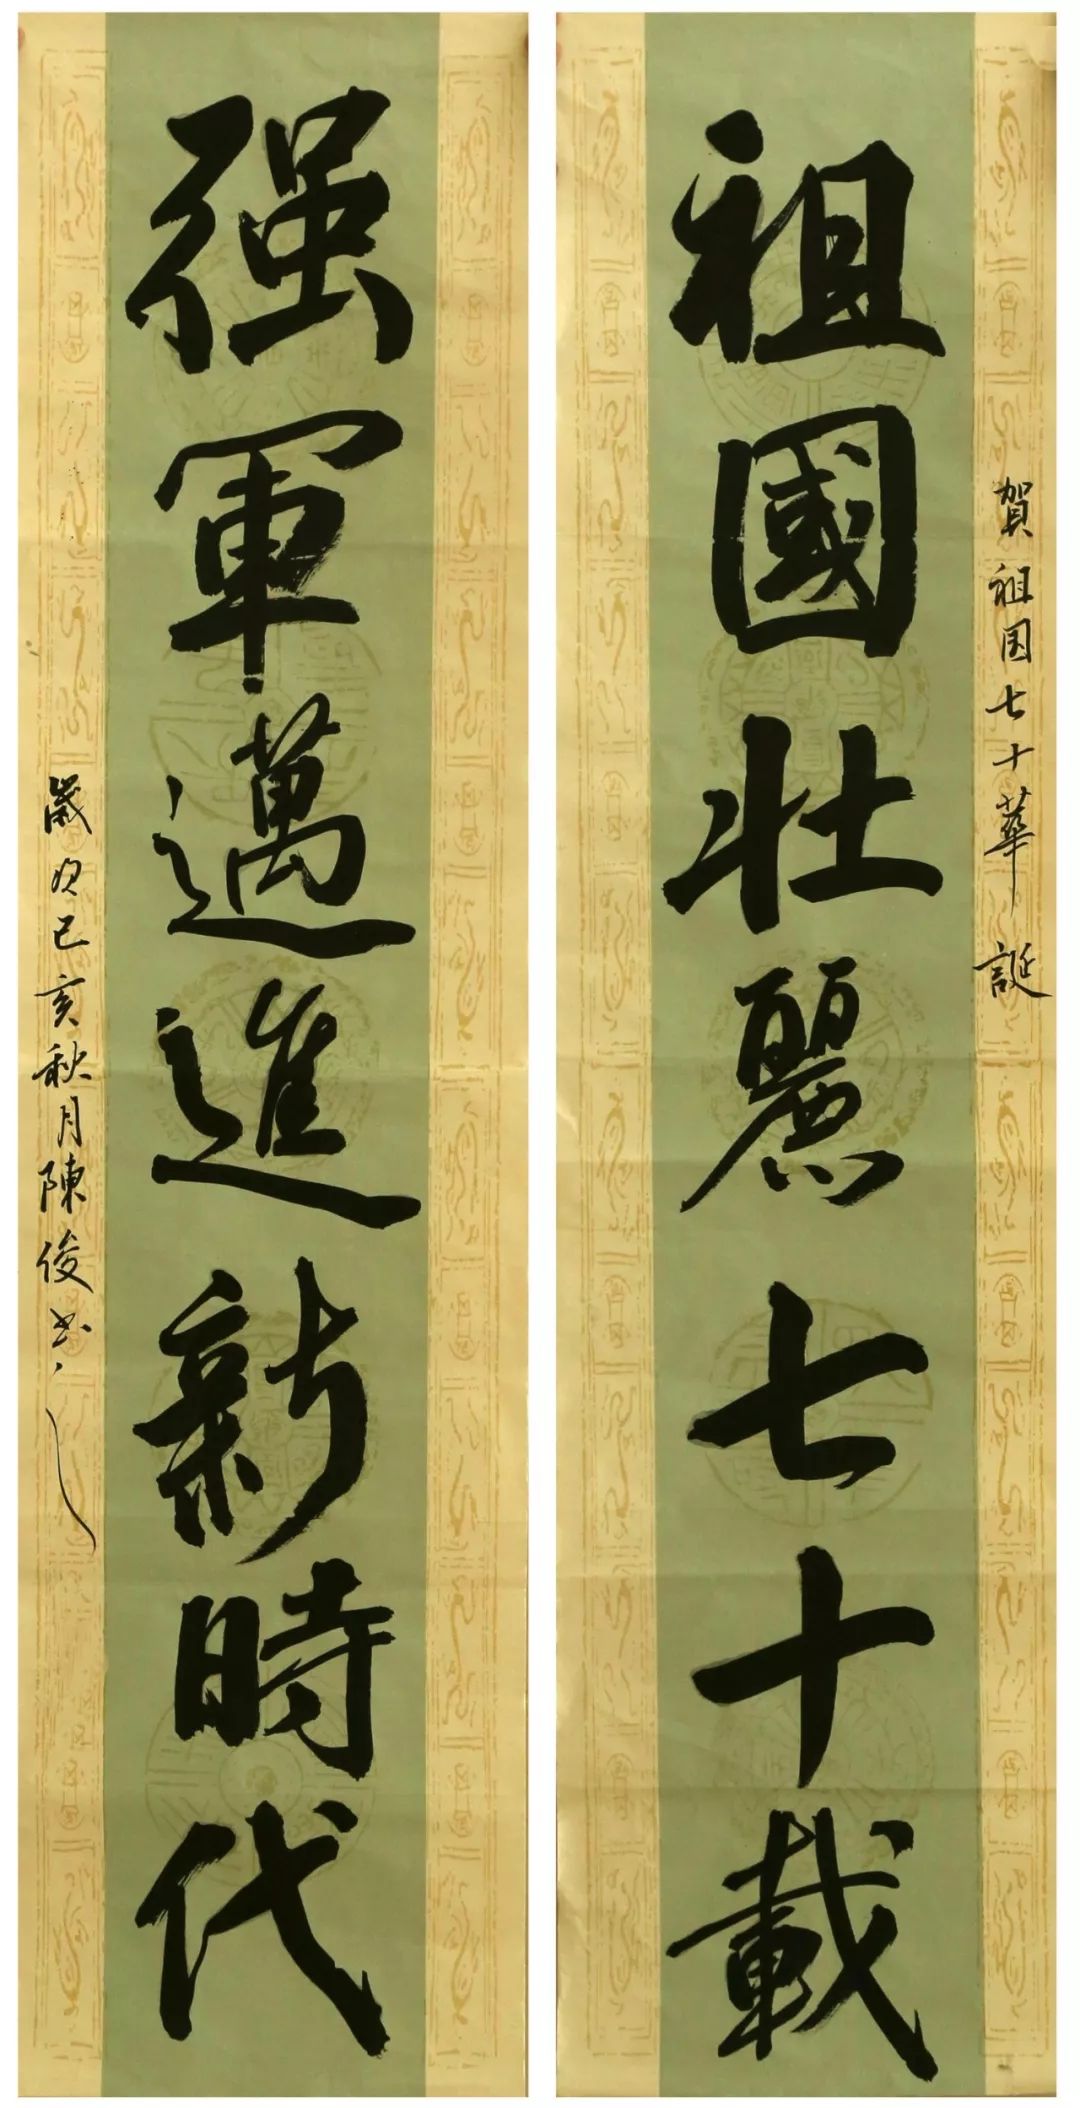 賀祖国七十華誕
祖國壯麗七十載
强軍邁進新時代
歲次己亥秋月陳俊书